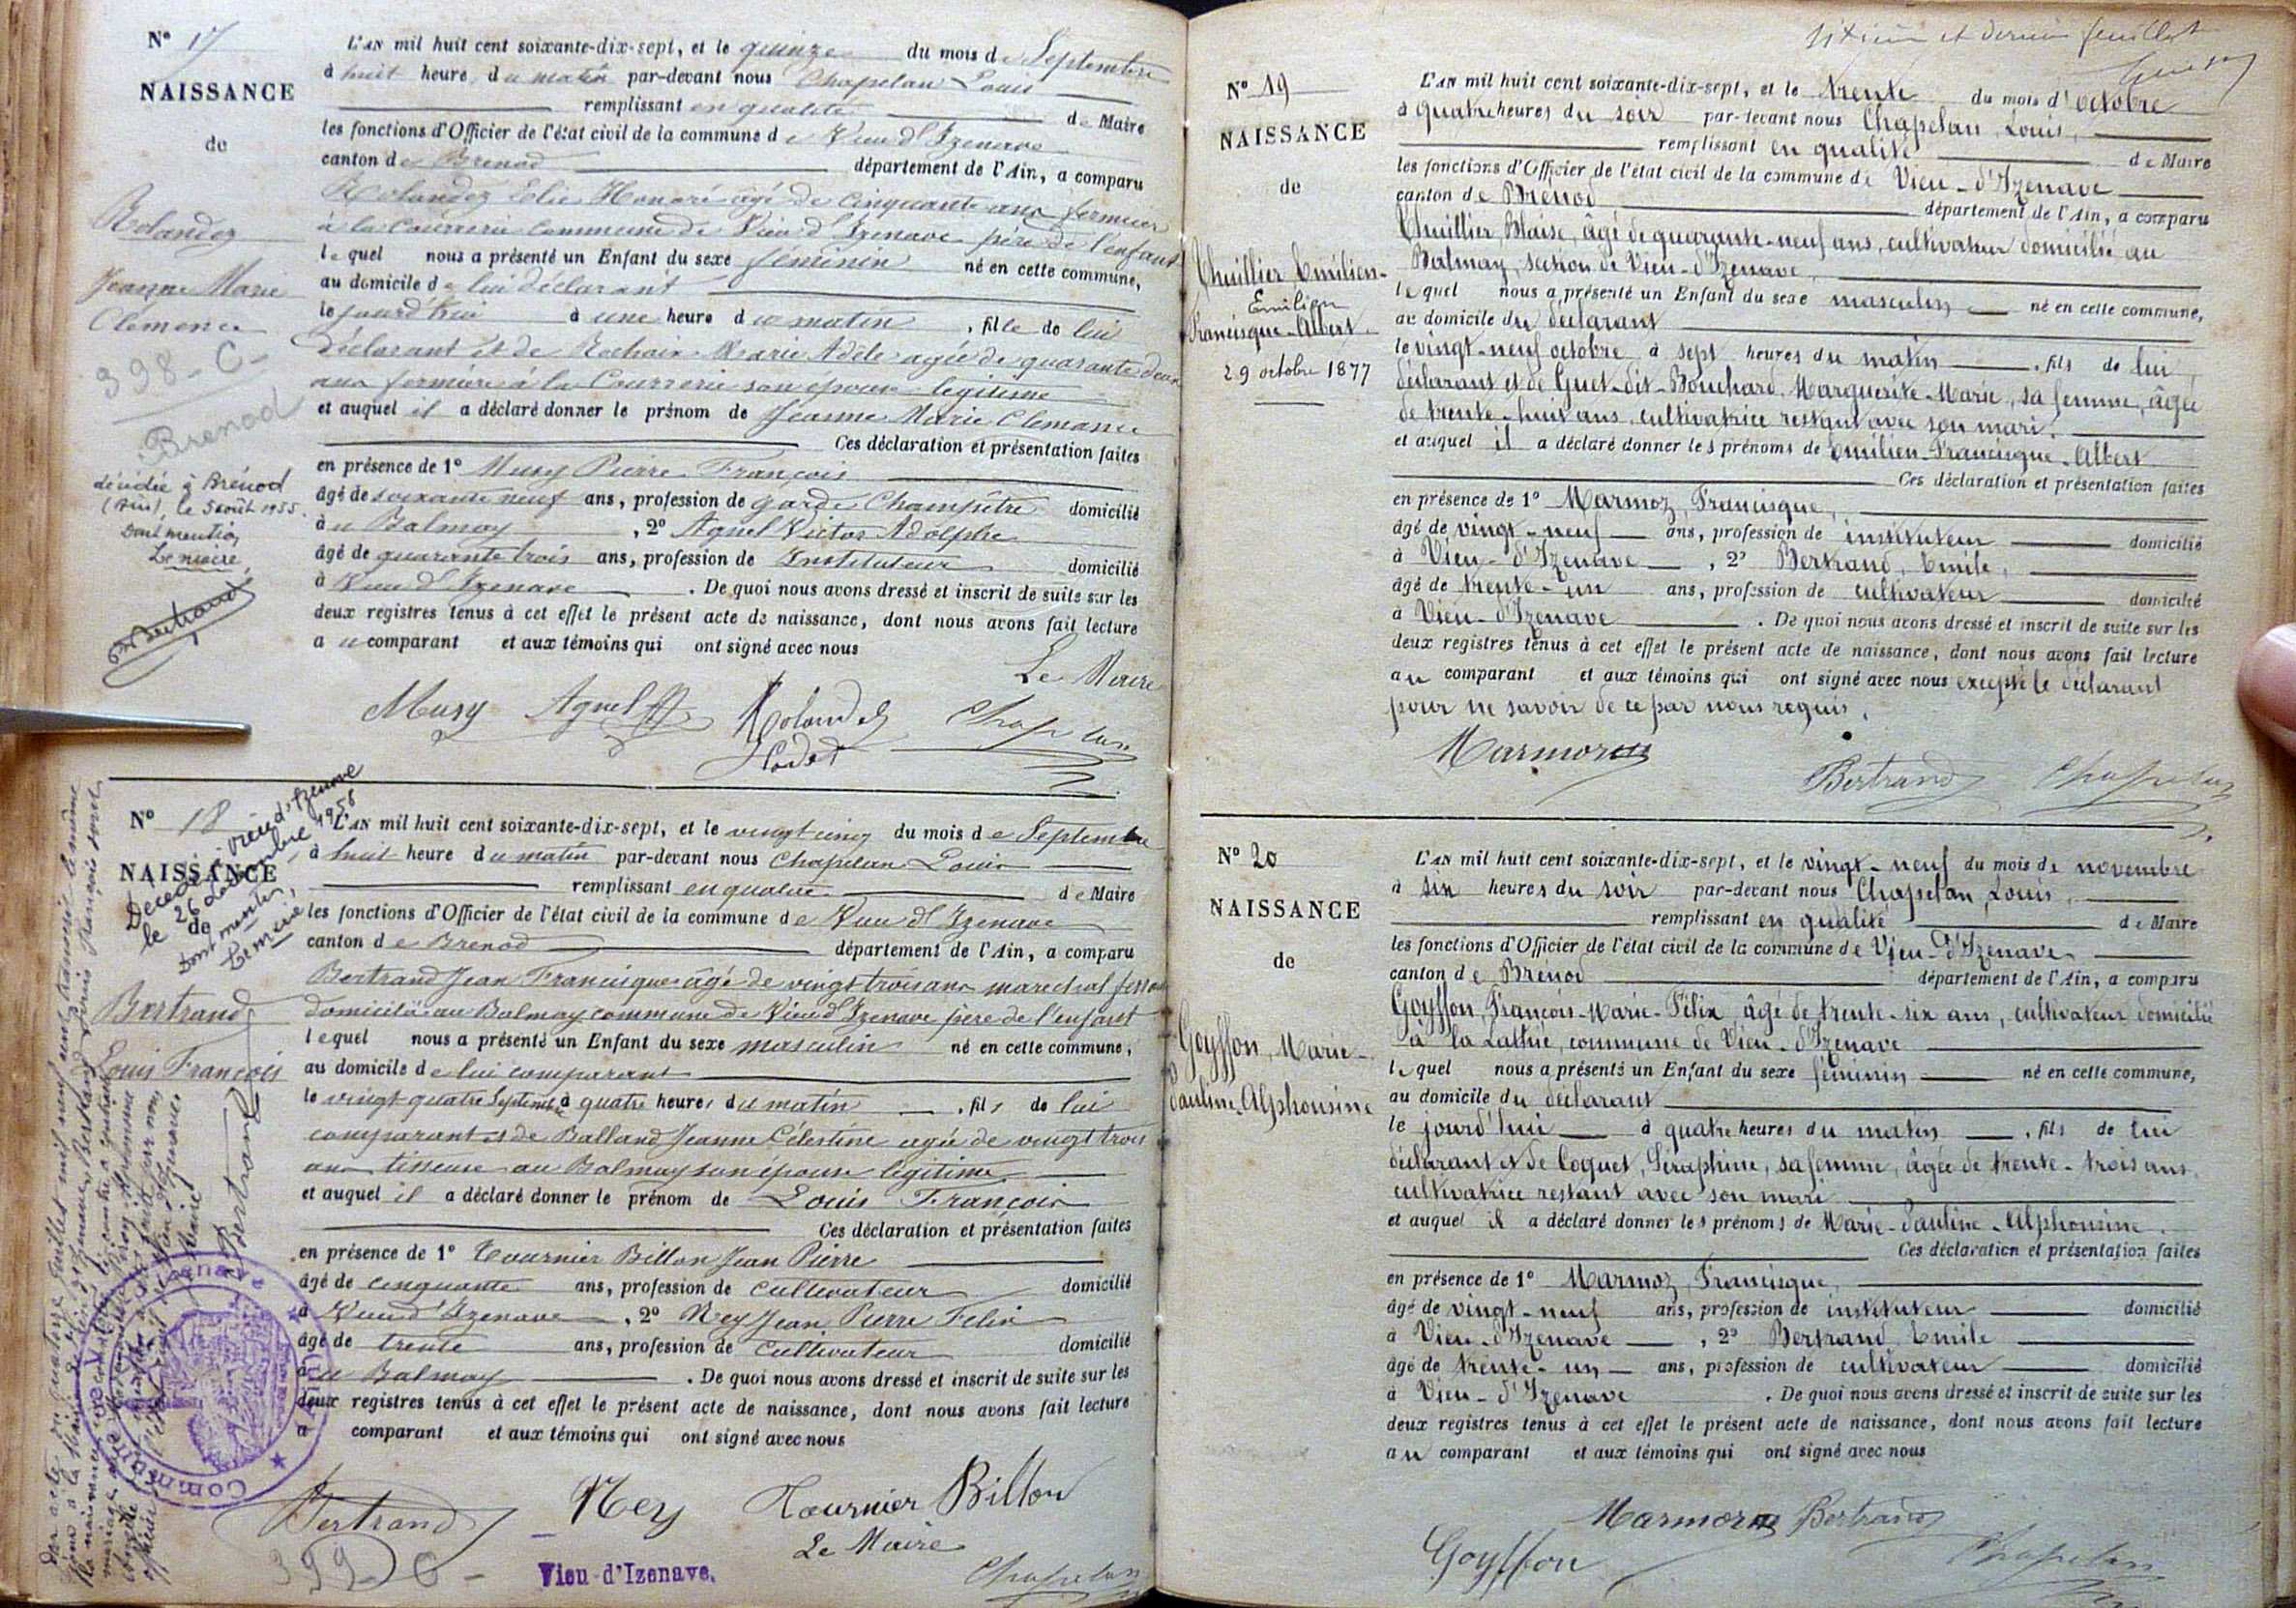 N° 17
NAISSANCE
de
Rolandez
Jeanne Marie
Clémence
398-C-
Brenod
décédée à Brénod
(Ain), le 5 août 1955
Dont mention
Le maire,
Bertrand
L'AN mil huit cent soixante-dix-sept, et le quinze du mois de Septembre
à huit heure du matin par-devant nous Chapelan Louis
remplissant en qualité de Maire
les fonctions d'Officier de l'état civil de la commune de Vieu d'Izenave
canton de Brenod département de l'Ain, a comparu
Rolandez Elie Honoré âgé de cinquante ans fermier
à la Courrerie commune de Vieu d'Izenave père de l'enfant
lequel nous a présenté un Enfant du sexe féminin né en cette commune,
au domicile de lui déclarant
le jourd'hui à une heure du matin, fille de lui
déclarant et de Rochaix Marie Adèle agée de quarante deux
ans fermière à la Courrerie son épouse légitime
et auquel il a déclaré donner le prénom de Jeanne Marie Clemance
Ces déclaration et présentation faites
en présence de 1° Musy Pierre François
âgé de soixante neuf ans, profession de garde Champêtre domicilié
au Balmay, 2° Agnel Victor Adolphe
âgé de quarante trois ans, profession de Instituteur domicilié
à Vieu d'Izenave. De quoi nous avons dressé et inscrit de suite sur les
deux registres tenus à cet effet le présent acte de naissance, dont nous avons fait lecture
au comparant et aux témoins qui ont signé avec nous
Le Maire
Musy Agnel Rolandez Chapelan
N° 18
NAISSANCE
de
Décédé à Vieu d'Izenave
le 26 décembre 1956
Dont mention,
Le maire
Bertrand
Louis François
Bertrand
L'AN mil huit cent soixante-dix-sept, et le vingt cinq du mois de Septembre
à huit heure du matin par-devant nous Chapelan Louis
remplissant en qualité de Maire
les fonctions d'Officier de l'état civil de la commune de Vieu d'Izenave
canton de Brenod département de l'Ain, a comparu
Bertrand Jean Francisque âgé de vingt trois ans marechal ferrant
domicilié au Balmay commune de Vieu d'Izenave père de l'enfant
lequel nous a présenté un Enfant du sexe masculin né en cette commune,
au domicile de lui comparant
le vingt quatre Septembre à quatre heures du matin, fils de lui
comparant et de Balland Jeanne Célestine agée de vingt trois
ans tisseuse au Balmay son épouse légitime
et auquel il a déclaré donner le prénom de Louis François
Ces déclaration et présentation faites
en présence de 1° Tournier Billon Jean Pierre
âgé de cinquante ans, profession de cultivateur domicilié
à Vieu d'Izenave, 2° Ney Jean Pierre Felix
âgé de trente ans, profession de Cultivateur domicilié
au Balmay. De quoi nous avons dressé et inscrit de suite sur les
deux registres tenus à cet effet le présent acte de naissance, dont nous avons fait lecture
a comparant et aux témoins qui ont signé avec nous
Bertrand Ney Tournier Billon
Le Maire
Chapelan
399-C-
Vieu-d'Izenave.
Sixième et dernier feuillet
N° 19
NAISSANCE
de
Thuillier Emilien-
Emilien
Francisque-Albert.
29 octobre 1877
L'AN mil huit cent soixante-dix-sept, et le trente du mois d'octobre
à quatre heures du soir par-devant nous Chapelan, Louis,
remplissant en qualité de Maire
les fonctions d'Officier de l'état civil de la commune de Vieu-d'Izenave
canton de Brénod département de l'Ain, a comparu
Thuillier, Blaise, âgé de quarante-neuf ans, cultivateur domicilié au
Balmay, section de Vieu-d'Izenave,
lequel nous a présenté un Enfant du sexe masculin né en cette commune,
au domicile du déclarant
le vingt-neuf octobre à sept heures du matin, fils de lui
déclarant et de Guet-dit-Bouchard, Marguerite-Marie, sa femme, âgée
de trente-huit ans, cultivatrice restant avec son mari.
et auquel il a déclaré donner les prénoms de Emilien-Francisque-Albert
Ces déclaration et présentation faites
en présence de 1° Marmoz, Francisque,
âgé de vingt-neuf ans, profession de instituteur domicilié
à Vieu-d'Izenave, 2° Bertrand, Emile,
âgé de trente-un ans, profession de cultivateur domicilié
à Vieu-d'Izenave. De quoi nous avons dressé et inscrit de suite sur les
deux registres tenus à cet effet le présent acte de naissance, dont nous avons fait lecture
au comparant et aux témoins qui ont signé avec nous excepté le déclarant
pour ne savoir de ce par nous requis.
Marmoz Bertrand Chapelan
N° 20
NAISSANCE
de
Goyffon, Marie-
Pauline-Alphonsine
L'AN mil huit cent soixante-dix-sept, et le vingt-neuf du mois de novembre
à six heures du soir par-devant nous Chapelan, Louis,
remplissant en qualité de Maire
les fonctions d'Officier de l'état civil de la commune de Vieu-d'Izenave
canton de Brénod département de l'Ain, a comparu
Goyffon, François-Marie-Félix, âgé de trente-six ans, cultivateur domicilié
à la Lathié, commune de Vieu-d'Izenave
lequel nous a présenté un Enfant du sexe féminin né en cette commune,
au domicile du déclarant
le jourd'hui à quatre heures du matin, fils de lui
déclarant et de Coquet, Séraphine, sa femme, âgée de trente-trois ans,
cultivatrice restant avec son mari
et auquel il a déclaré donner les prénoms de Marie-Pauline-Alphonsine.
Ces déclaration et présentation faites
en présence de 1° Marmoz, Francisque,
âgé de vingt-neuf ans, profession de instituteur domicilié
à Vieu-d'Izenave, 2° Bertrand, Emile
âgé de trente-un ans, profession de cultivateur domicilié
à Vieu-d'Izenave. De quoi nous avons dressé et inscrit de suite sur les
deux registres tenus à cet effet le présent acte de naissance, dont nous avons fait lecture
au comparant et aux témoins qui ont signé avec nous
Marmoz Bertrand
Goyffon Chapelan